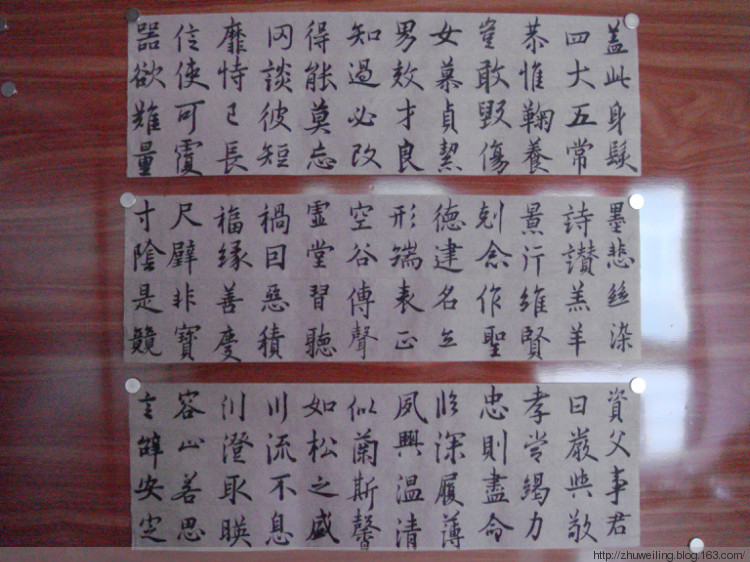 蓋此身髮
四大五常
恭惟鞠養
豈敢毀傷
女慕貞絜
男效才良
知過必改
得能莫忘
罔談彼短
靡恃己長
信使可覆
器欲難量
墨悲絲染
詩讚羔羊
景行維賢
剋念作聖
德建名立
形端表正
空谷傳聲
虛堂習聽
禍因惡積
福緣善慶
尺璧非寶
寸陰是競
資父事君
曰嚴與敬
孝當竭力
忠則盡命
臨深履薄
夙興溫清
似蘭斯馨
如松之盛
川流不息
淵澄取暎
容止若思
言辭安定
http://zhuweiling.blog.163.com/